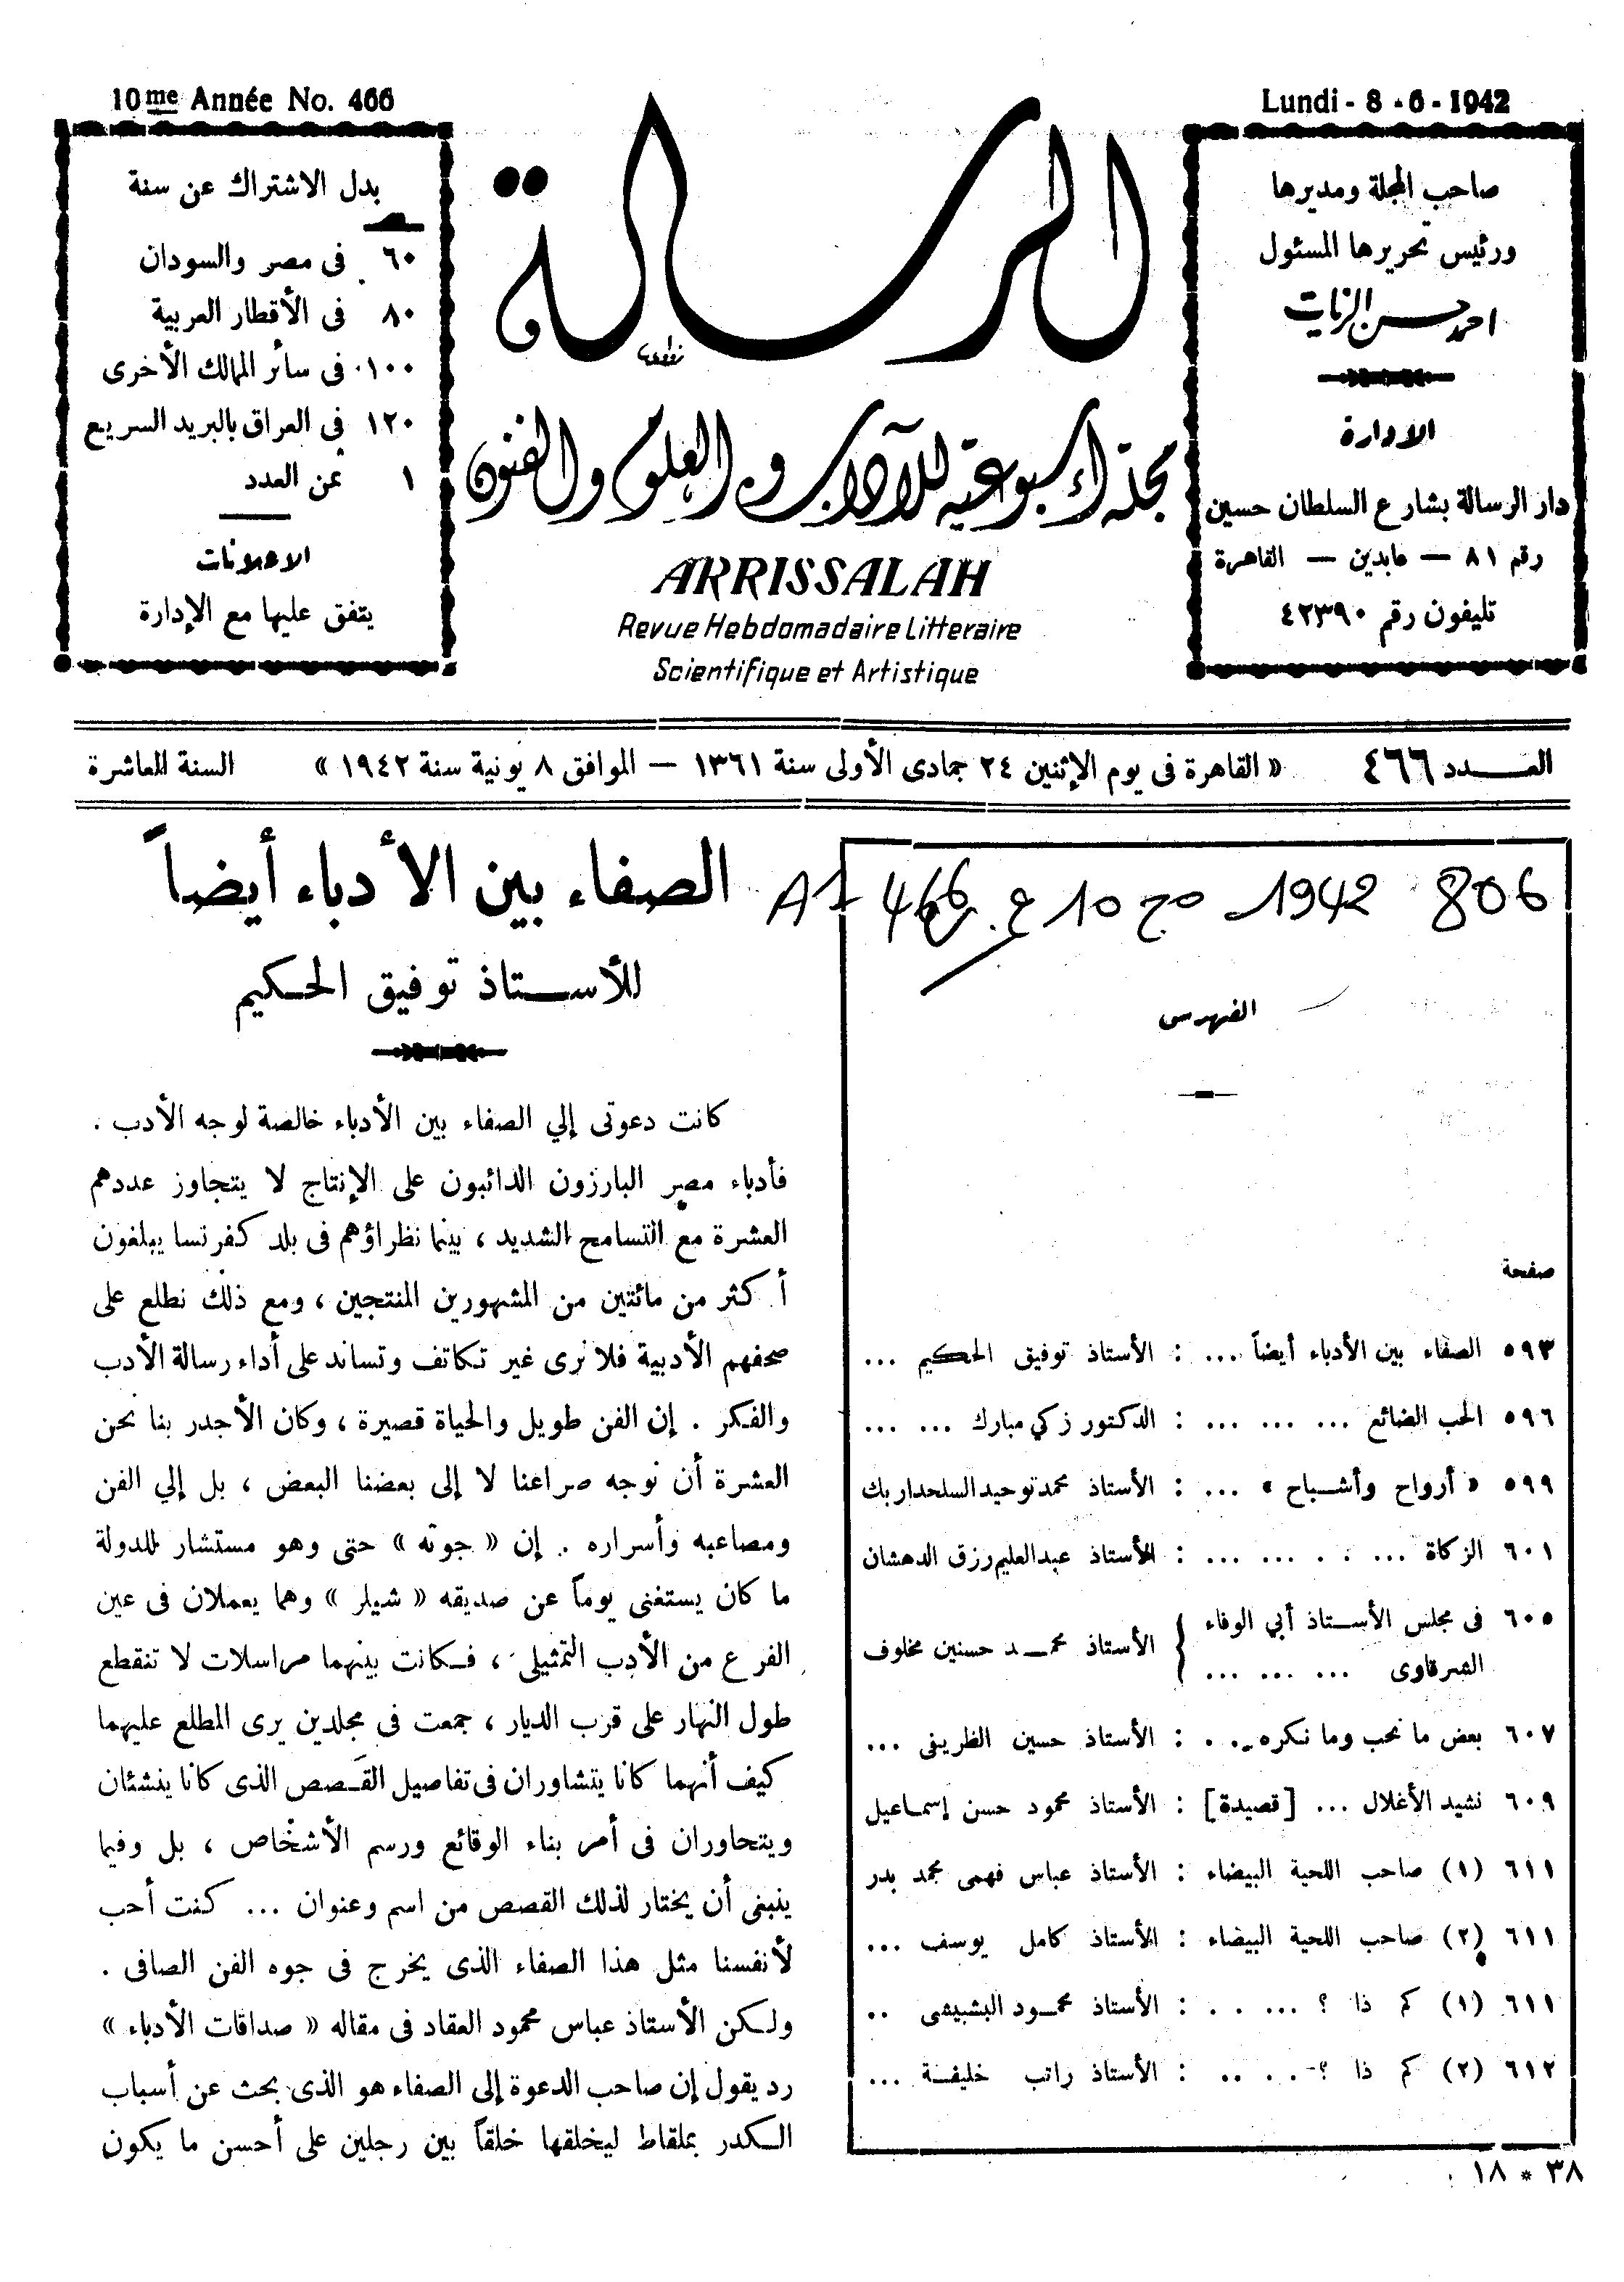 10me Année No. 466
Lundi - 8 - 6 - 1942
صاحب المجلة ومديرها
ورئيس تحريرها المسئول
احمد حسن الزيات
الادارة
دار الرسالة بشارع السلطان حسين
رقم ٨١ — عابدين — القاهرة
تليفون رقم ٤٢٣٩٠
الرسالة
مجلة أسبوعية للآداب والعلوم والفنون
ARRISSALAH
Revue Hebdomadaire Litteraire
Scientifique et Artistique
بدل الاشتراك عن سنة
٦٠ فى مصر والسودان
٨٠ فى الأقطار العربية
١٠٠ فى سائر الممالك الأخرى
١٢٠ فى العراق بالبريد السريع
١ ثمن العدد
الاعلانات
يتفق عليها مع الإدارة
العـــدد ٤٦٦ « القاهرة فى يوم الإثنين ٢٤ جمادى الأولى سنة ١٣٦١ — الموافق ٨ يونية سنة ١٩٤٢ » السنة العاشرة
806 1942
الفهرس
صفحة
٥٩٣ الصفاء بين الأدباء أيضاً ... : الأستاذ توفيق الحكيم ...
٥٩٦ الحب الضائع ... ... ... : الدكتور زكي مبارك ... ...
٥٩٩ « أرواح وأشباح » ... : الأستاذ محمد توحيد السلحدار بك
٦٠١ الزكاة ... . ... ... : الأستاذ عبد العليم رزق الدهشان
٦٠٥ فى مجلس الأستاذ أبي الوفاء الشرقاوى ... ... ... } الأستاذ محمد حسنين مخلوف
٦٠٧ بعض ما نحب وما نكره .. . : الأستاذ حسين الظريفى ...
٦٠٩ نشيد الأغلال ... [قصيدة] : الأستاذ محمود حسن إسماعيل
٦١١ (١) صاحب اللحية البيضاء : الأستاذ عباس فهمى محمد بدر
٦١١ (٢) صاحب اللحية البيضاء : الأستاذ كامل يوسف ...
٦١١ (١) كم ذا ؟ ... . . : الأستاذ محمود البشبيشى ..
٦١٢ (٢) كم ذا ؟ . . .. : الأستاذ راتب خليفة ...
٣٨ * ١٨
الصفاء بين الأدباء أيضاً
للأستاذ توفيق الحكيم
كانت دعوتى إلي الصفاء بين الأدباء خالصة لوجه الأدب .
فأدباء مصر البارزون الدائبون على الإنتاج لا يتجاوز عددهم
العشرة مع التسامح الشديد ، بينما نظراؤهم فى بلد كفرنسا يبلغون
أكثر من مائتين من المشهورين المنتجين ، ومع ذلك نطلع على
صحفهم الأدبية فلا نرى غير تكاتف وتساند على أداء رسالة الأدب
والفكر . إن الفن طويل والحياة قصيرة ، وكان الأجدر بنا نحن
العشرة أن نوجه صراعنا لا إلى بعضنا البعض ، بل إلي الفن
ومصاعبه وأسراره . إن « جوته » حتى وهو مستشار للدولة
ما كان يستغنى يوماً عن صديقه « شيلر » وهما يعملان فى عين
الفرع من الأدب التمثيلى ، فكانت بينهما مراسلات لا تنقطع
طول النهار على قرب الديار ، جمعت فى مجلدين يرى المطلع عليهما
كيف أنهما كانا يتشاوران فى تفاصيل القَصص الذى كانا ينشئان
ويتحاوران فى أمر بناء الوقائع ورسم الأشخاص ، بل وفيما
ينبغى أن يختار لذلك القصص من اسم وعنوان ... كنت أحب
لأنفسنا مثل هذا الصفاء الذى يخرج فى جوه الفن الصافى .
ولكن الأستاذ عباس محمود العقاد فى مقاله « صداقات الأدباء »
رد يقول إن صاحب الدعوة إلى الصفاء هو الذى بحث عن أسباب
الكدر بملقاط ليخلقها خلقاً بين رجلين على أحسن ما يكون